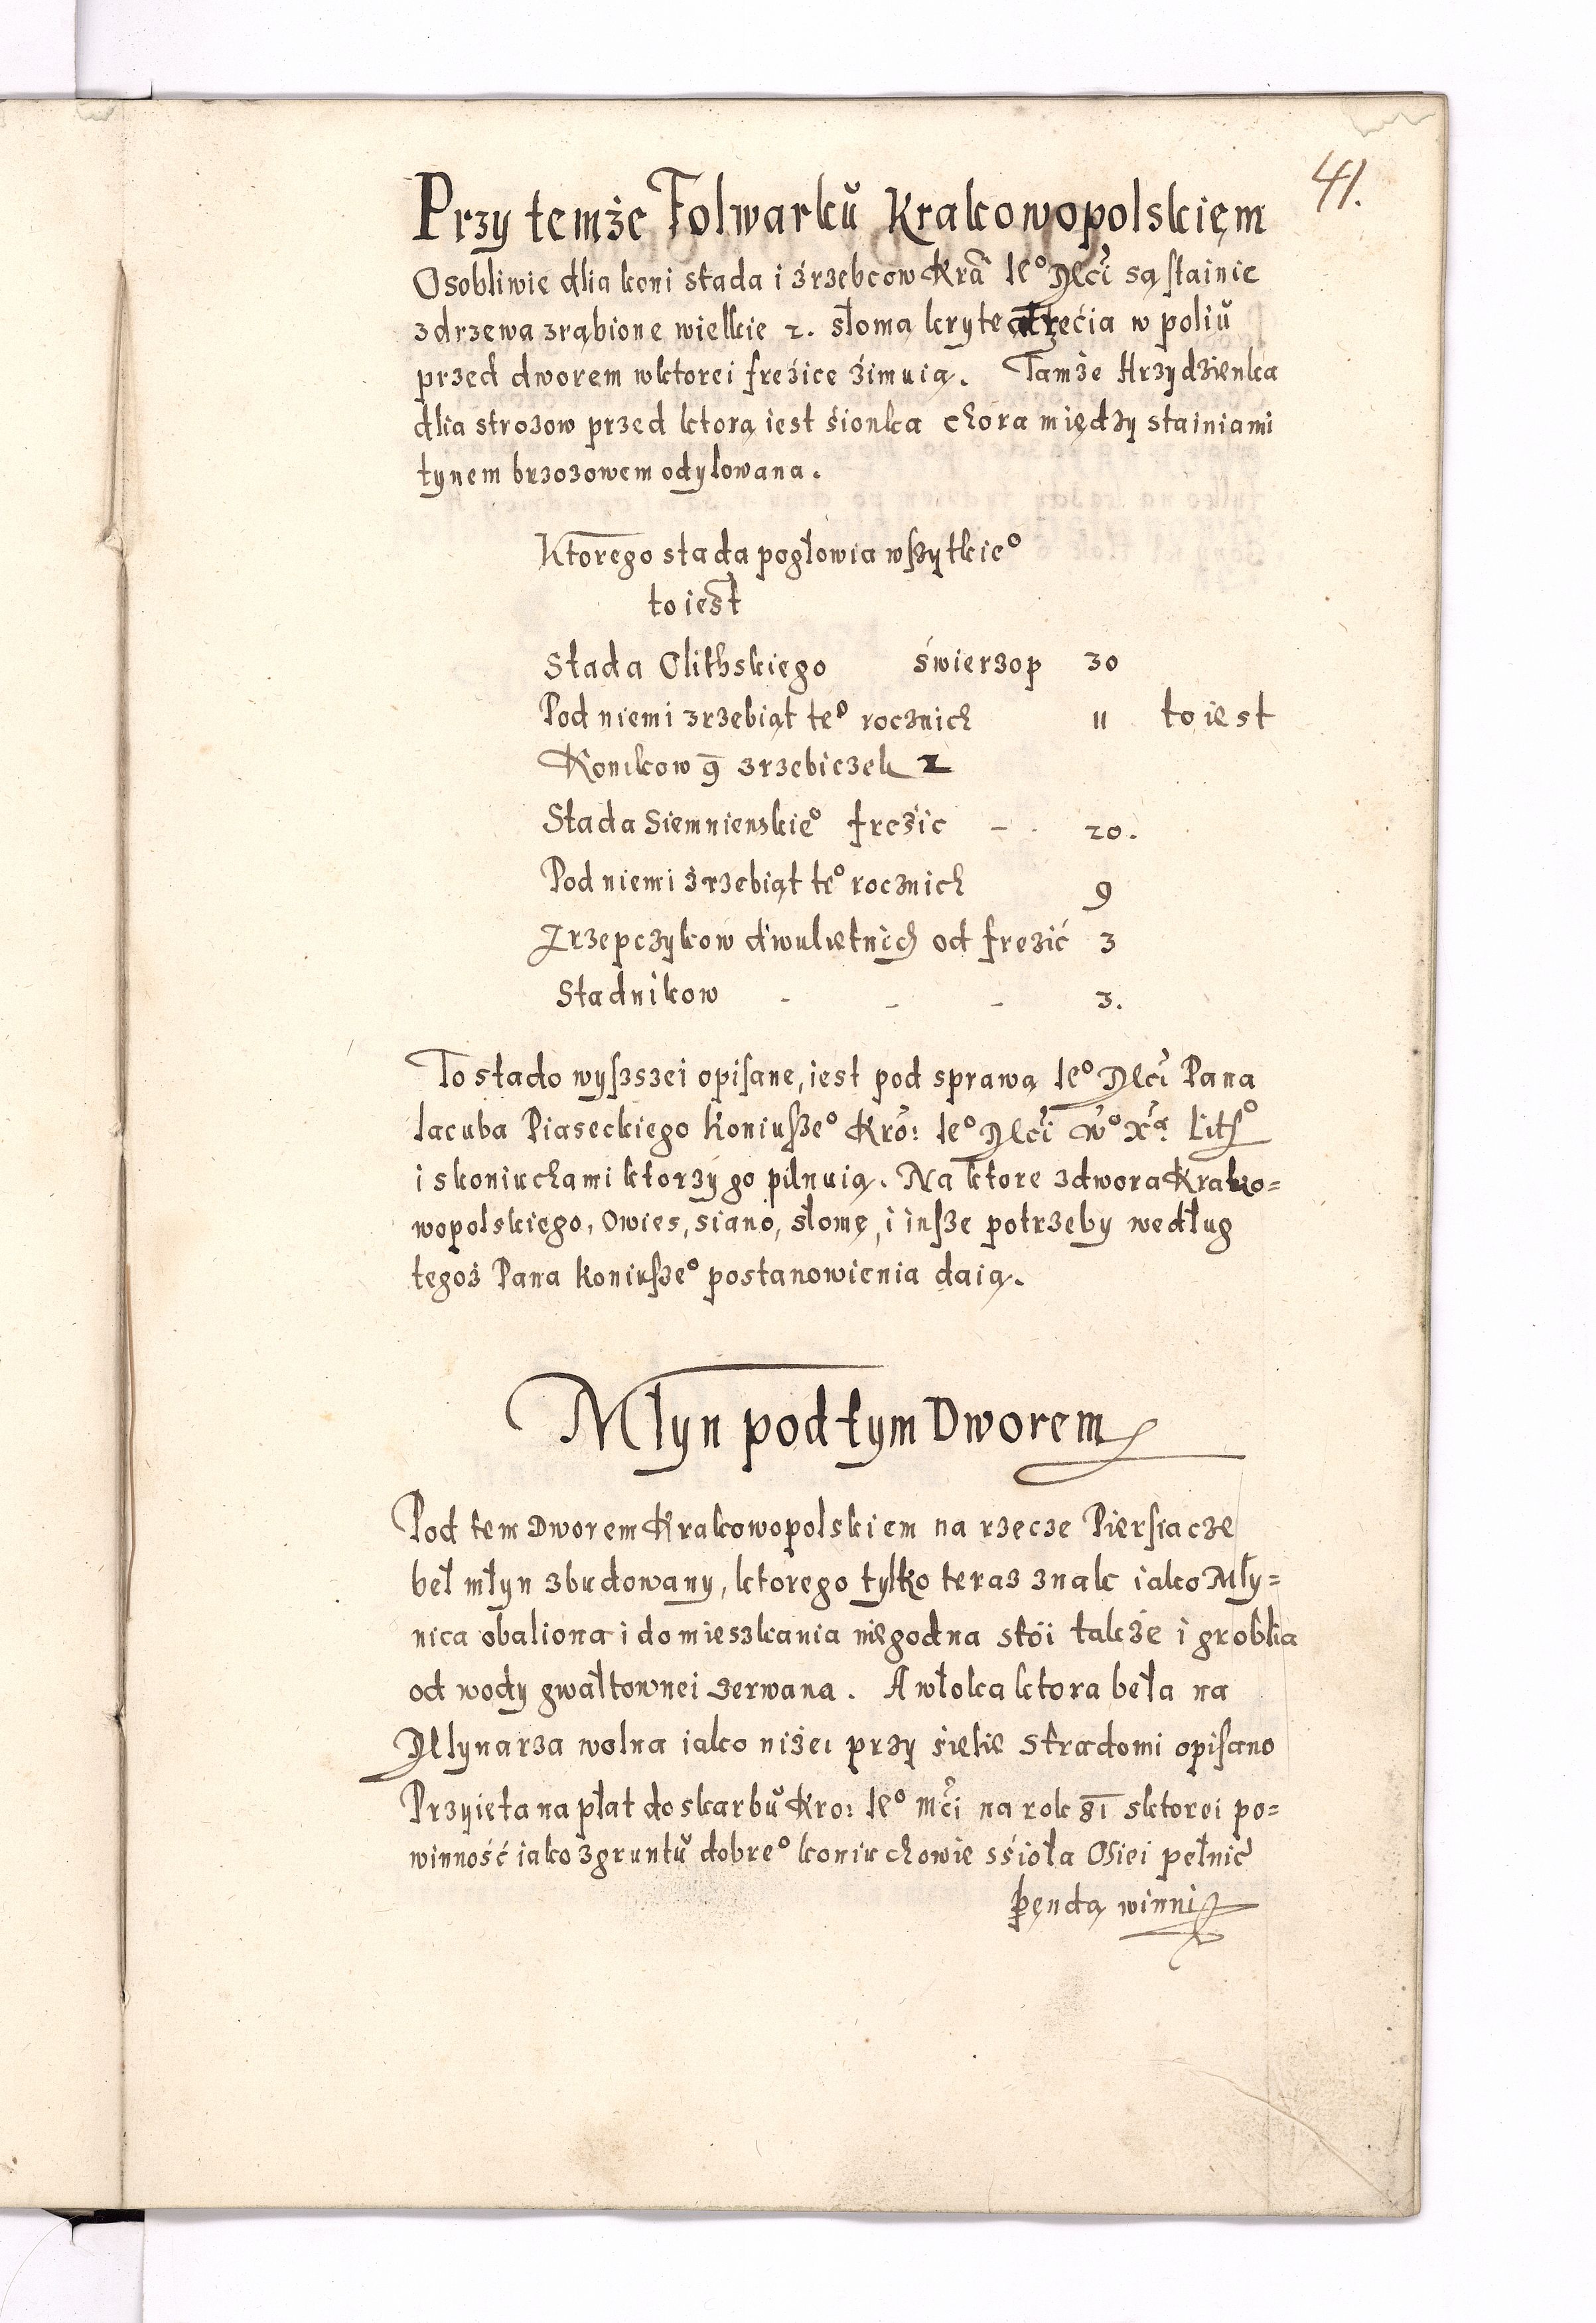 41.
Przy temże Folwarku Krakowopolskięm
Osobliwie dlia koni stada i źrzebcow Kra Ie° Mci są stainie
z drzewa zrąbione wielkie 2. słomą kryte a trzecia w poliu
przed dworem w ktorei freżice źimuią. Tamże Hrzydzienka
dlia strozow przed ktorą iest śionka chora między stainiami
tynem brzozowem odylowana.
Ktorego stada pogłowia wszytkie°
to iest
Stada Olithskiego świerzop 30
Pod niemi zrzebiąt te° rocznich 11 to iest
Konikow 9 zrzebiczek 2
Stada Siemnienskie° freżic - . 20.
Pod niemi źrzebiąt te° rocznich 9
Zrzepczykow dwuletnich od frezić 3
Stadnikow - - - 3.
To stado wyszszei opisane, iest pod sprawą Ie° Mci Pana
Iacuba Piaseckiego Koniusze° Kro: Ie° Mci W° Xa Lith°
i s koniuchami ktorzy go pilnuią. Na ktore z dwora Krako=
wopolskiego, Owies, siano, słomę, i insze potrzeby według
tegoż Pana Koniusze° postanowienia daią.
Młyn pod tym Dworem
Pod tem Dworem Krakowopolskiem na rzecze Piersiacze
beł młyn zbudowany, ktorego tylko teraz znak iako Mły=
nica obaliona i do mieszkania niegodna stoi także i grobla
od wody gwałtownei zerwana. A włoka ktora beła na
Młynarza wolna iako niżei przy śielie Stradomi opisano
Przyięta na płat do skarbu Kro: Ie° mci na rok 81 s ktorei po=
winność iako z gruntu dobre° koniuchowie s śioła Osiei pełnić
bęndą winni